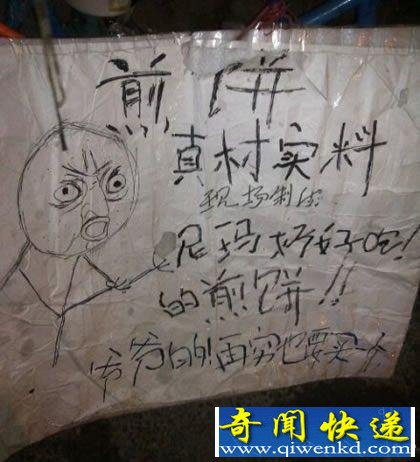 煎饼
真材实料
现场制作
尼玛好好吃！
的煎饼！！
爷爷的！再穷也要买一个
奇闻快递
www.qiwenkd.com